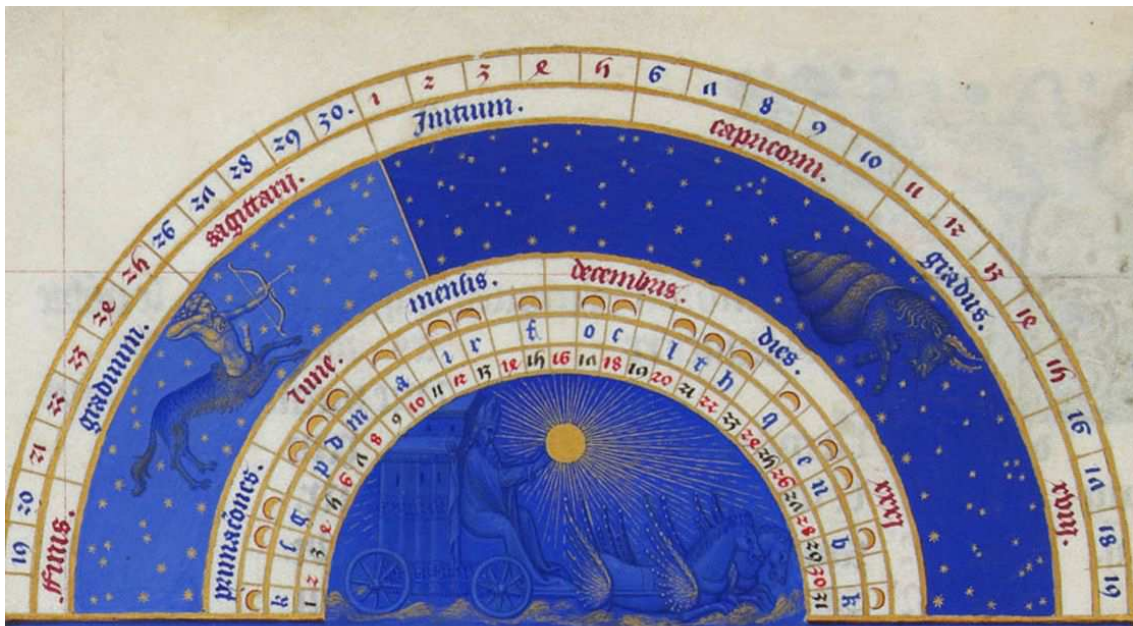 19 20 21 22 23 24 25 26 27 28 29 30. 1 2 3 4 5 6 7 8 9 10 11 12 13 14 15 16 17 18 19
ffinis. graduum. sagittarij. Initium. capricorni. gradus. xviii.
primaciones. lune. mensis. decembris. dies. xxxi
k s g p d m a i r f o c l t h q e n b k
1 2 3 4 5 6 7 8 9 10 11 12 13 14 15 16 17 18 19 20 21 22 23 24 25 26 27 28 29 30 31